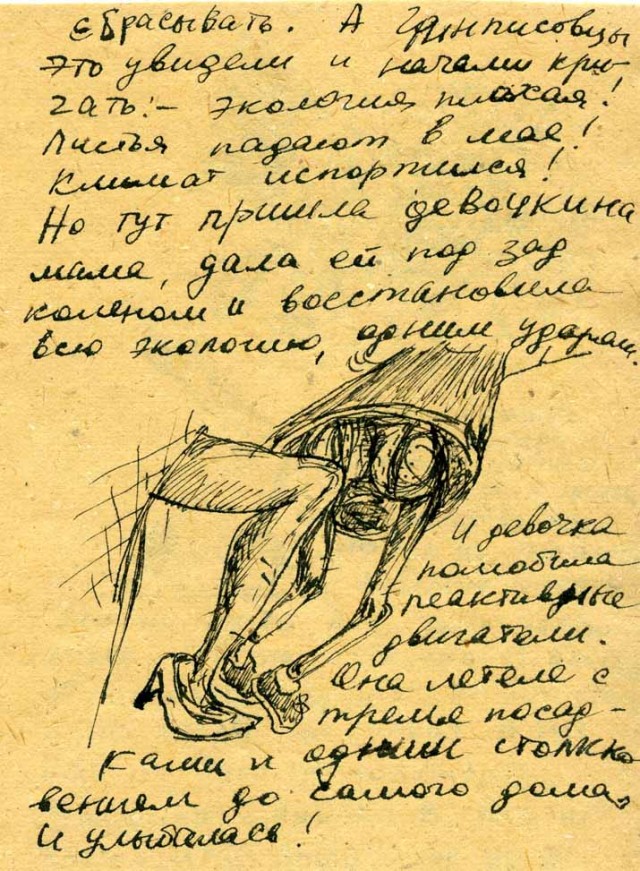 сбрасывать. А Гринписовцы
это увидели и начали кри-
чать:- экология плохая!
Листья падают в мае!
Климат испортился!
Но тут пришла девочкина
мама, дала ей под зад
коленом и восстановила
всю экологию, одним ударом.
И девочка
полюбила
реактивные
двигатели.
Она летела с
тремя посад-
ками и одним столкно
вением до самого дома,
И улыбалась!